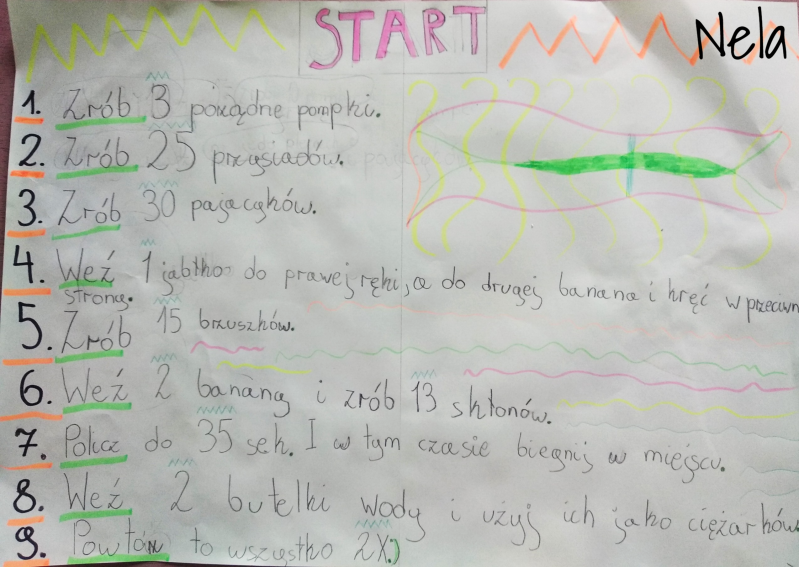 START
Nela
1. Zrób 3 porządne pompki.
2. Zrób 25 przysiadów.
3. Zrób 30 pajacyków.
4. Weź 1 jabłko do prawej ręki, a do drugiej banana i kręć w przeciwn
stronę.
5. Zrób 15 brzuszków.
6. Weź 2 banany i zrób 13 skłonów.
7. Policz do 35 sek. I w tym czasie biegnij w miejscu.
8. Weź 2 butelki wody i użyj ich jako ciężarków
9. Powtórz to wszystko 2X:)